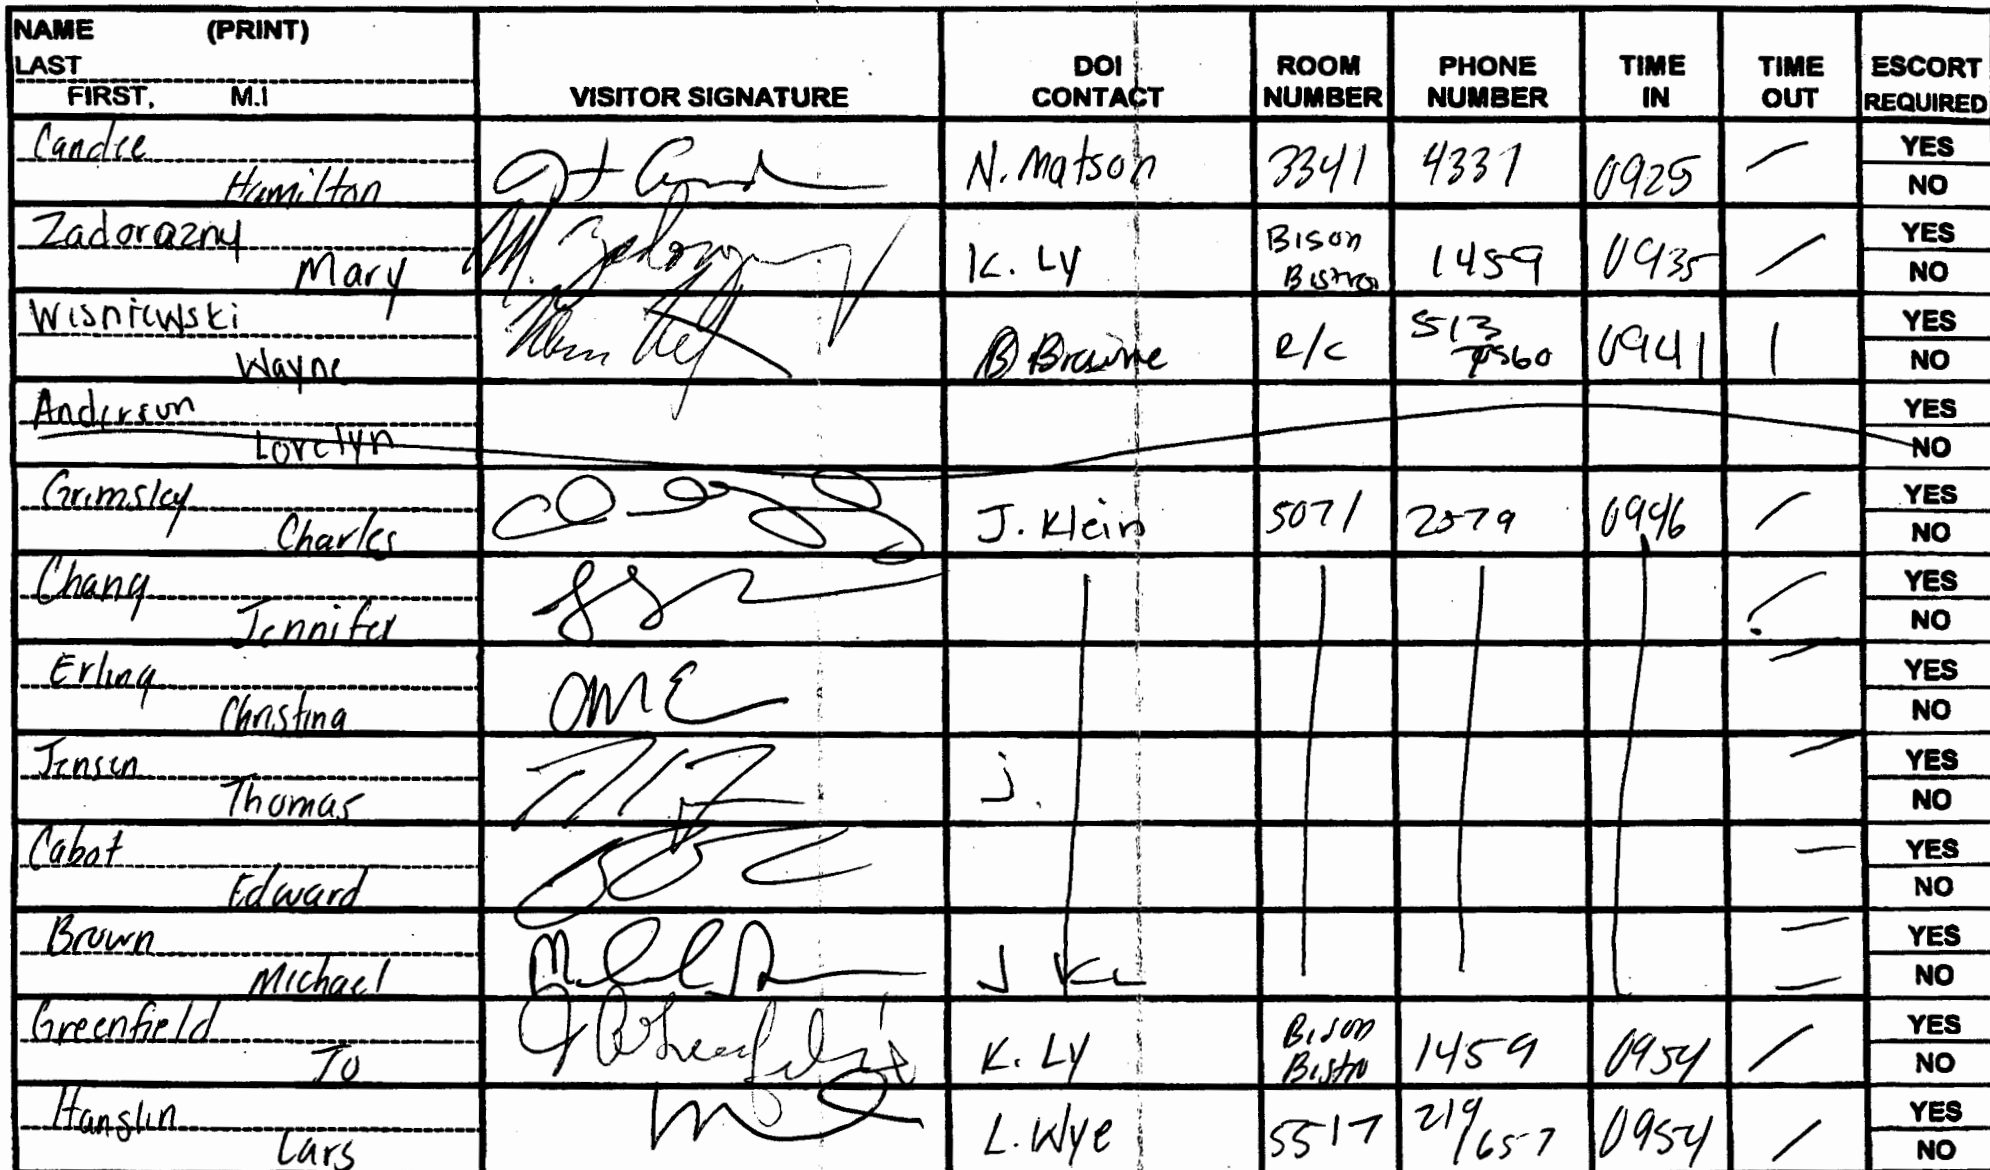 NAME (PRINT)
LAST
FIRST, M.I
VISITOR SIGNATURE
DOI
CONTACT
ROOM
NUMBER
PHONE
NUMBER
TIME
IN
TIME
OUT
ESCORT
REQUIRED
Candice
Hamilton
N. Matson
3341
4331
0925
YES
NO
Zadorazny
Mary
K. Ly
Bison
Bistro
1459
0935
YES
NO
Wisniewski
Wayne
0941
YES
NO
Anderson
Lorelyn
YES
NO
Grimsley
Charles
J. Klein
5071
0946
YES
NO
Chang
Jennifer
YES
NO
Erling
Christina
YES
NO
Jensen
Thomas
J.
YES
NO
Cabot
Edward
YES
NO
Brown
Michael
YES
NO
Greenfield
Jo
K. Ly
Bison
Bistro
1459
0954
YES
NO
Hanslin
Lars
L. Wye
5517
219/657
0954
YES
NO